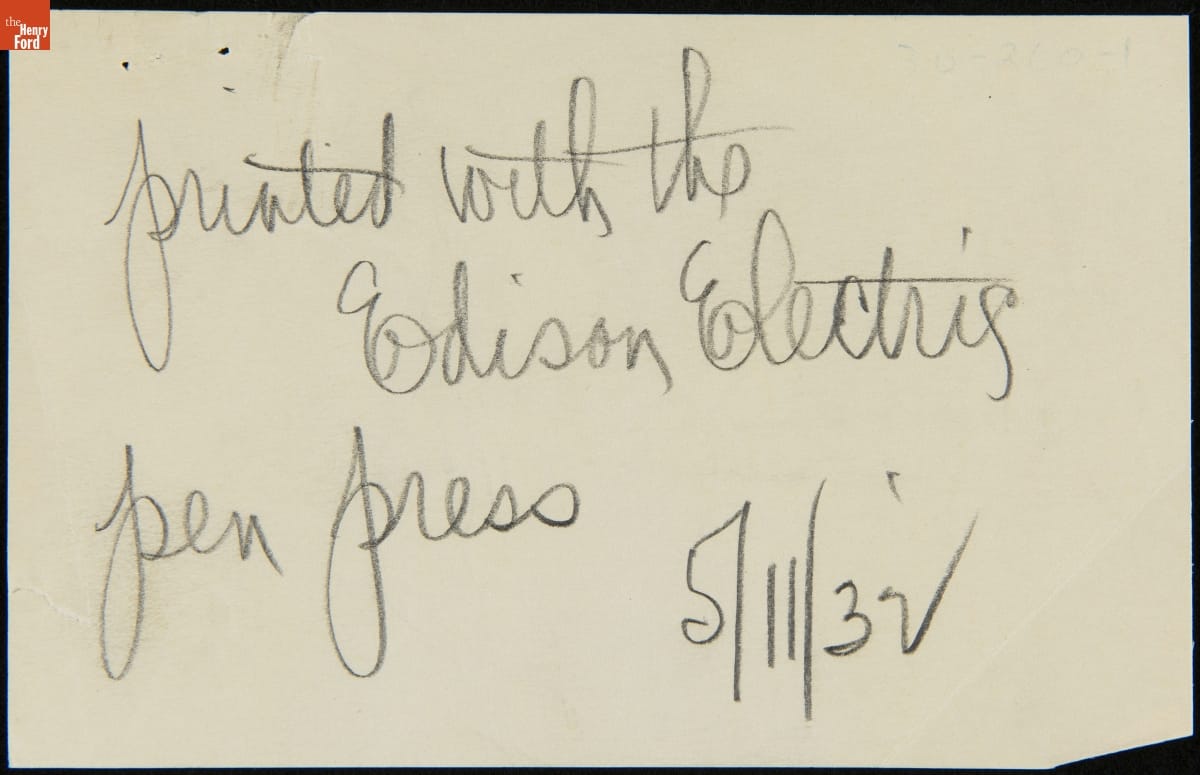 the
Henry
Ford
printed with the
Edison Electric
pen press
5/11/32